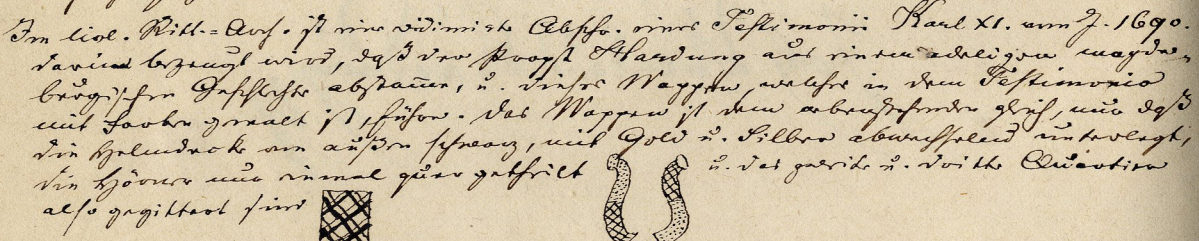 Im livl. Ritt.-Arch. ist eine vidimirte Abschr. eines Testimonii Karl XI. vom J. 1690.
darin bezeugt wird, daß der Propst Hardung aus einem adeligen magde-
burgischen Geschlechte abstamme, u. dieses Wappen, welches in dem Testimonio
mit Farben gemalt ist, führe. Das Wappen ist dem obenstehenden gleich, nur daß
die Helmdecke von außen schwarz, mit Gold u. Silber abwechselnd unterlegt,
die Hörner nur einmal quer getheilt u. das zweite u. dritte Quartier
also gegittert sind